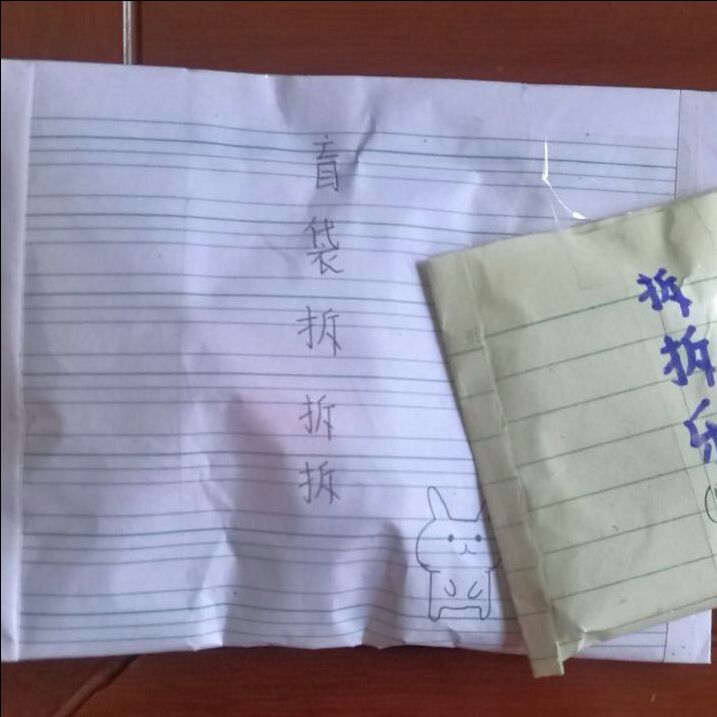 盲袋拆拆拆
拆拆乐